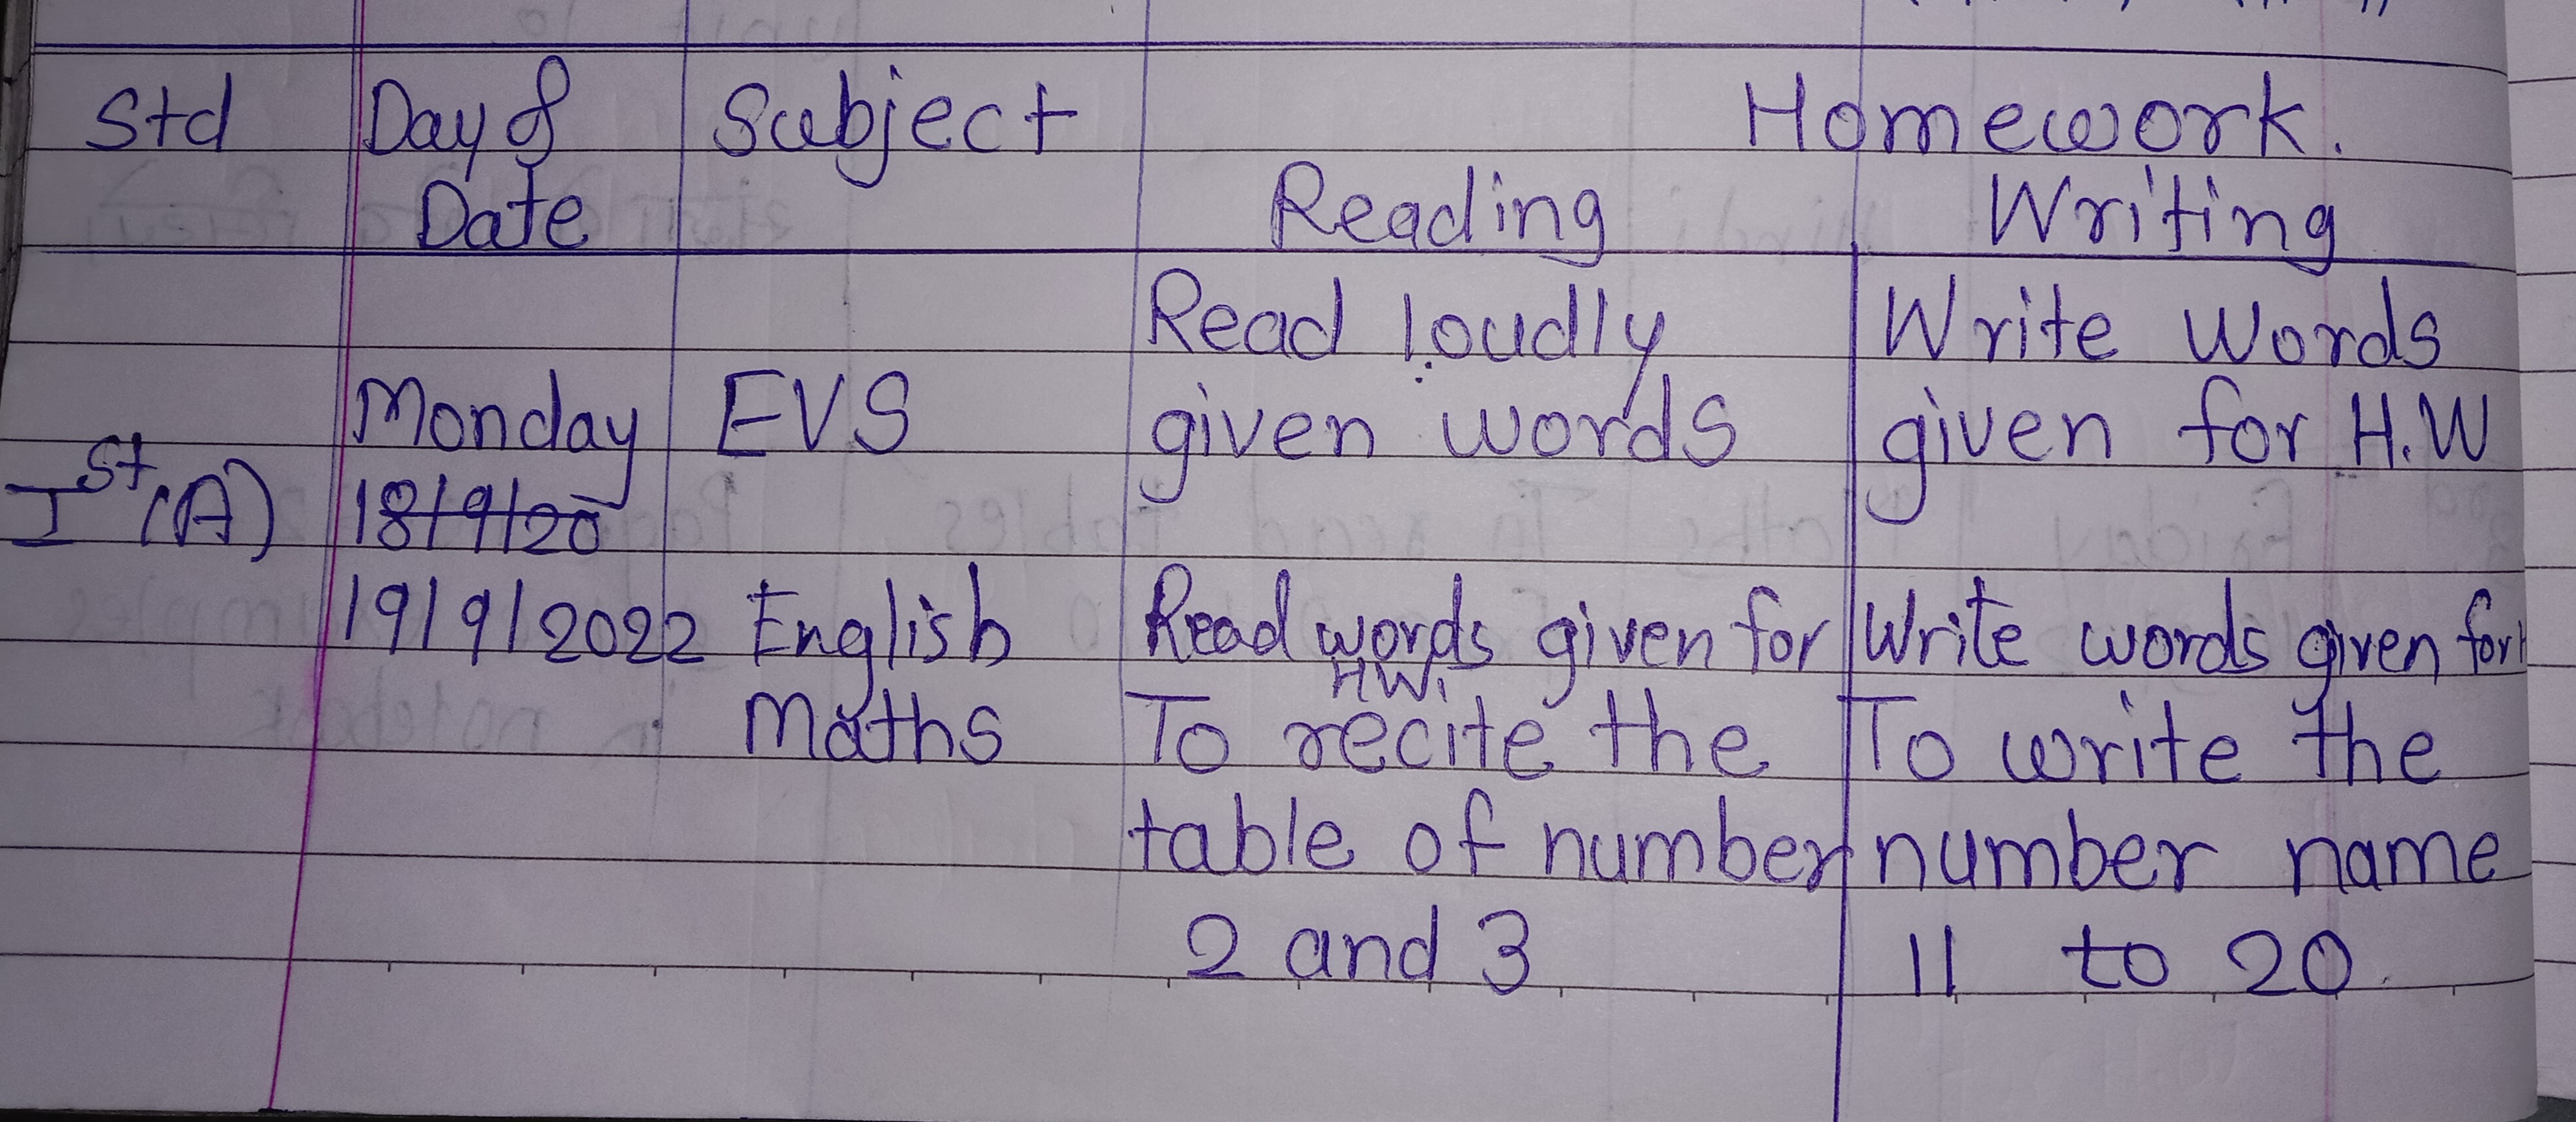 Std Day & Subject Homework.
Date Reading Writing
Read loudly Write words
Monday EVS given words given for H.W
Ist (A) 18/9/20
19/9/2022 English Read words given for Write words given for
HW.
Maths To recite the To write the
table of number number name
2 and 3 11 to 20.